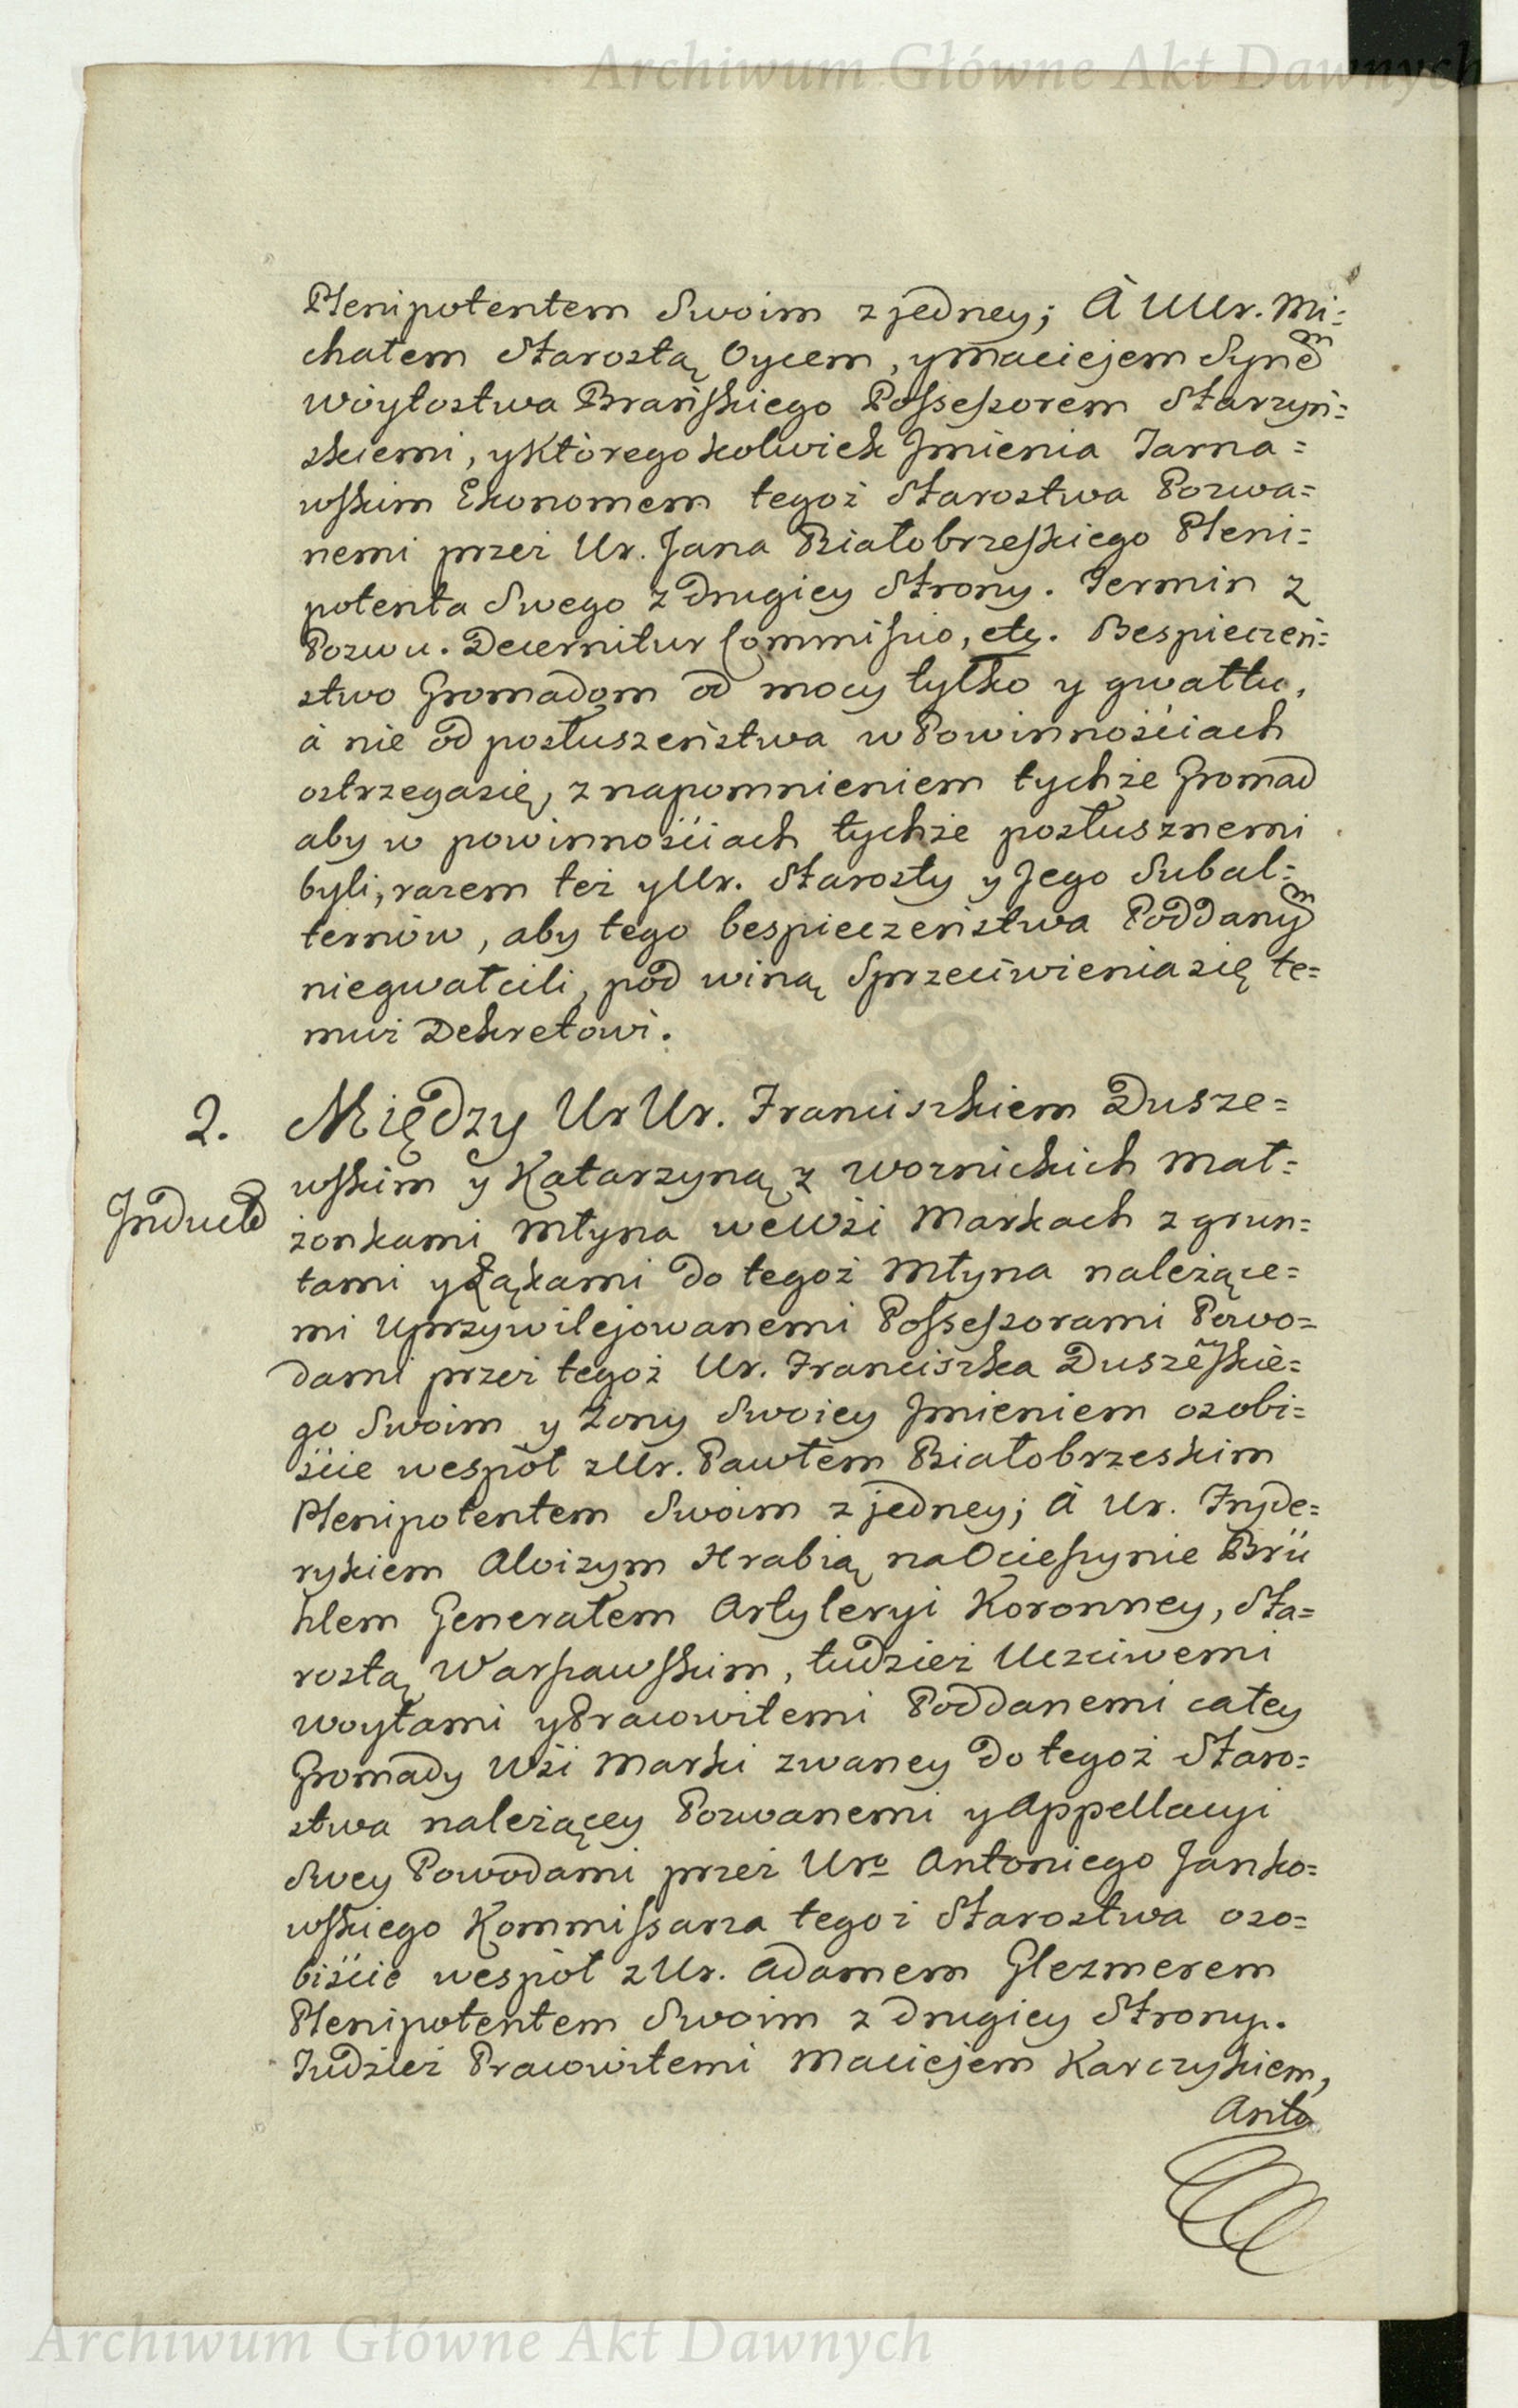 Archiwum Główne Akt Dawnych
Plenipotentem Swoim z jedney; À UUr. Mi=
chałem Starostą Oycem, y Maciejem Synem
Wòytostwa Brańskiego Possessorem Starzyń=
skiemi, y Ktòregokolwiek Jmienia Tarna=
wskim Ekonomem tegoż Starostwa Pozwa=
nemi przez Ur. Jana Białobrzeskiego Pleni=
potenta Swego z drugiey Strony. Termin z
Pozwu. Decernitur Commissio, etc. Bespieczeń=
stwo Gromadom od mocy tylko y gwałtu,
à nie od posłuszeństwa w Powinnościach
ostrzega się, z napomnieniem tychże Gromad
aby w powinnościach tychże posłusznemi
byli, razem też y Ur. Starosty y Jego Subal=
ternòw, aby tego bespieczeństwa Poddanym
niegwałcili, pod winą Sprzeciwienia się te=
muż Dekretowi.
2. Między Ur Ur. Franciszkiem Dusze=
wskim y Katarzyną z Woznickich Mał=
Induct
żonkami Młyna we Wśi Markach z grun=
tami y Łąkami do tegoż Młyna należące=
mi Uprzywilejowanemi Possessorami Powo=
dami przez tegoż Ur. Franciszka Duszewskie=
go Swoim y Żony Swoiey Jmieniem osobi=
ście wespòł z Ur. Pawłem Białobrzeskim
Plenipotentem Swoim z jedney; À Ur. Fryde=
rykiem Aloizym Hrabią na Ocieszynie Brü
hlem Generałem Artyleryi Koronney, Sta=
rostą Warszawskim, tudzież Uczciwemi
Woytami y Pracowitemi Poddanemi całey
Gromady Wśi Marki zwaney do tegoż Staro=
stwa należącey Pozwanemi y Appellacyi
Swey Powodami przez Uro Antoniego Janko=
wskiego Kommissarza tegoż Starostwa oso=
biście wespòł z Ur. Adamem Glezmerem
Plenipotentem Swoim z drugiey Strony.
Tudzież Pracowitemi Maciejem Karczykiem,
Anto
Archiwum Główne Akt Dawnych